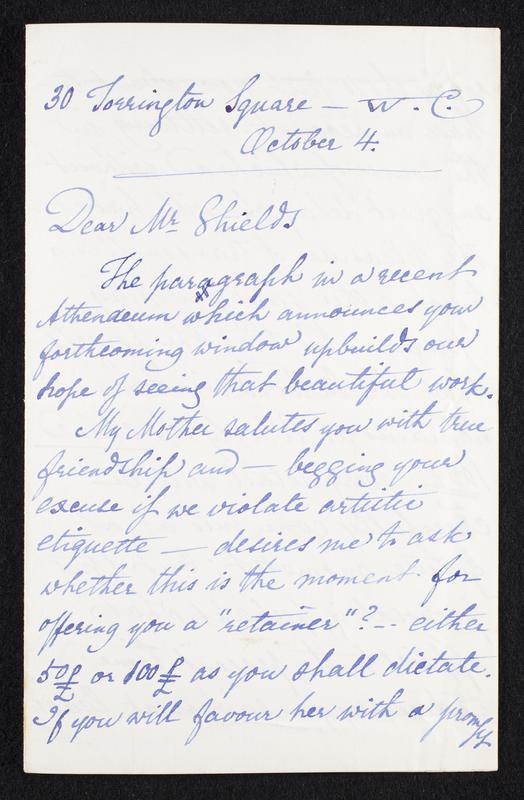 30 Torrington Square — W. C.
October 4.
Dear Mr Shields
The paragraph in a recent
Athenaeum which announces your
forthcoming window upbuilds our
hope of seeing that beautiful work.
My Mother salutes you with true
friendship and — begging your
excuse if we violate artistic
etiquette — desires me to ask
whether this is the moment for
offering you a "retainer"? — either
50£ or 100£ as you shall dictate.
If you will favour her with a prompt